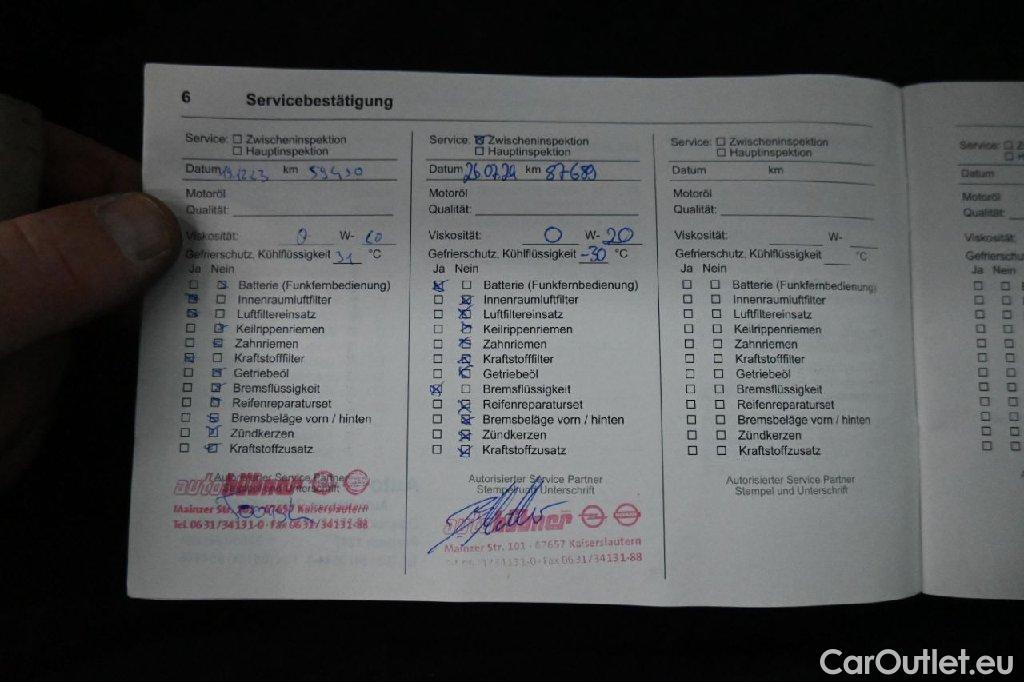 6 Servicebestätigung
Service: Zwischeninspektion
Hauptinspektion
Datum 19.12.23 km 59430
Motoröl
Qualität:
Viskosität: 0 W- 20
Gefrierschutz, Kühlflüssigkeit 31 °C
Ja Nein
Batterie (Funkfernbedienung)
Innenraumluftfilter
Luftfiltereinsatz
Keilrippenriemen
Zahnriemen
Kraftstofffilter
Getriebeöl
Bremsflüssigkeit
Reifenreparaturset
Bremsbeläge vorn / hinten
Zündkerzen
Kraftstoffzusatz
Autorisierter Service Partner
Stempel und Unterschrift
Mainzer Str. 101 · 67657 Kaiserslautern
Tel. 0631/34131-0 · Fax 0631/34131-88
Service: Zwischeninspektion
Hauptinspektion
Datum 26.07.24 km 87689
Motoröl
Qualität:
Viskosität: 0 W- 20
Gefrierschutz, Kühlflüssigkeit -30 °C
Ja Nein
Batterie (Funkfernbedienung)
Innenraumluftfilter
Luftfiltereinsatz
Keilrippenriemen
Zahnriemen
Kraftstofffilter
Getriebeöl
Bremsflüssigkeit
Reifenreparaturset
Bremsbeläge vorn / hinten
Zündkerzen
Kraftstoffzusatz
Autorisierter Service Partner
Stempel und Unterschrift
Mainzer Str. 101 · 67657 Kaiserslautern
Tel. 0631/34131-0 · Fax 0631/34131-88
Service: Zwischeninspektion
Hauptinspektion
Datum km
Motoröl
Qualität:
Viskosität: W-
Gefrierschutz, Kühlflüssigkeit °C
Ja Nein
Batterie (Funkfernbedienung)
Innenraumluftfilter
Luftfiltereinsatz
Keilrippenriemen
Zahnriemen
Kraftstofffilter
Getriebeöl
Bremsflüssigkeit
Reifenreparaturset
Bremsbeläge vorn / hinten
Zündkerzen
Kraftstoffzusatz
Autorisierter Service Partner
Stempel und Unterschrift
Service:
Datum
Motoröl
Qualität:
Viskosität:
Ja Nein
CarOutlet.eu